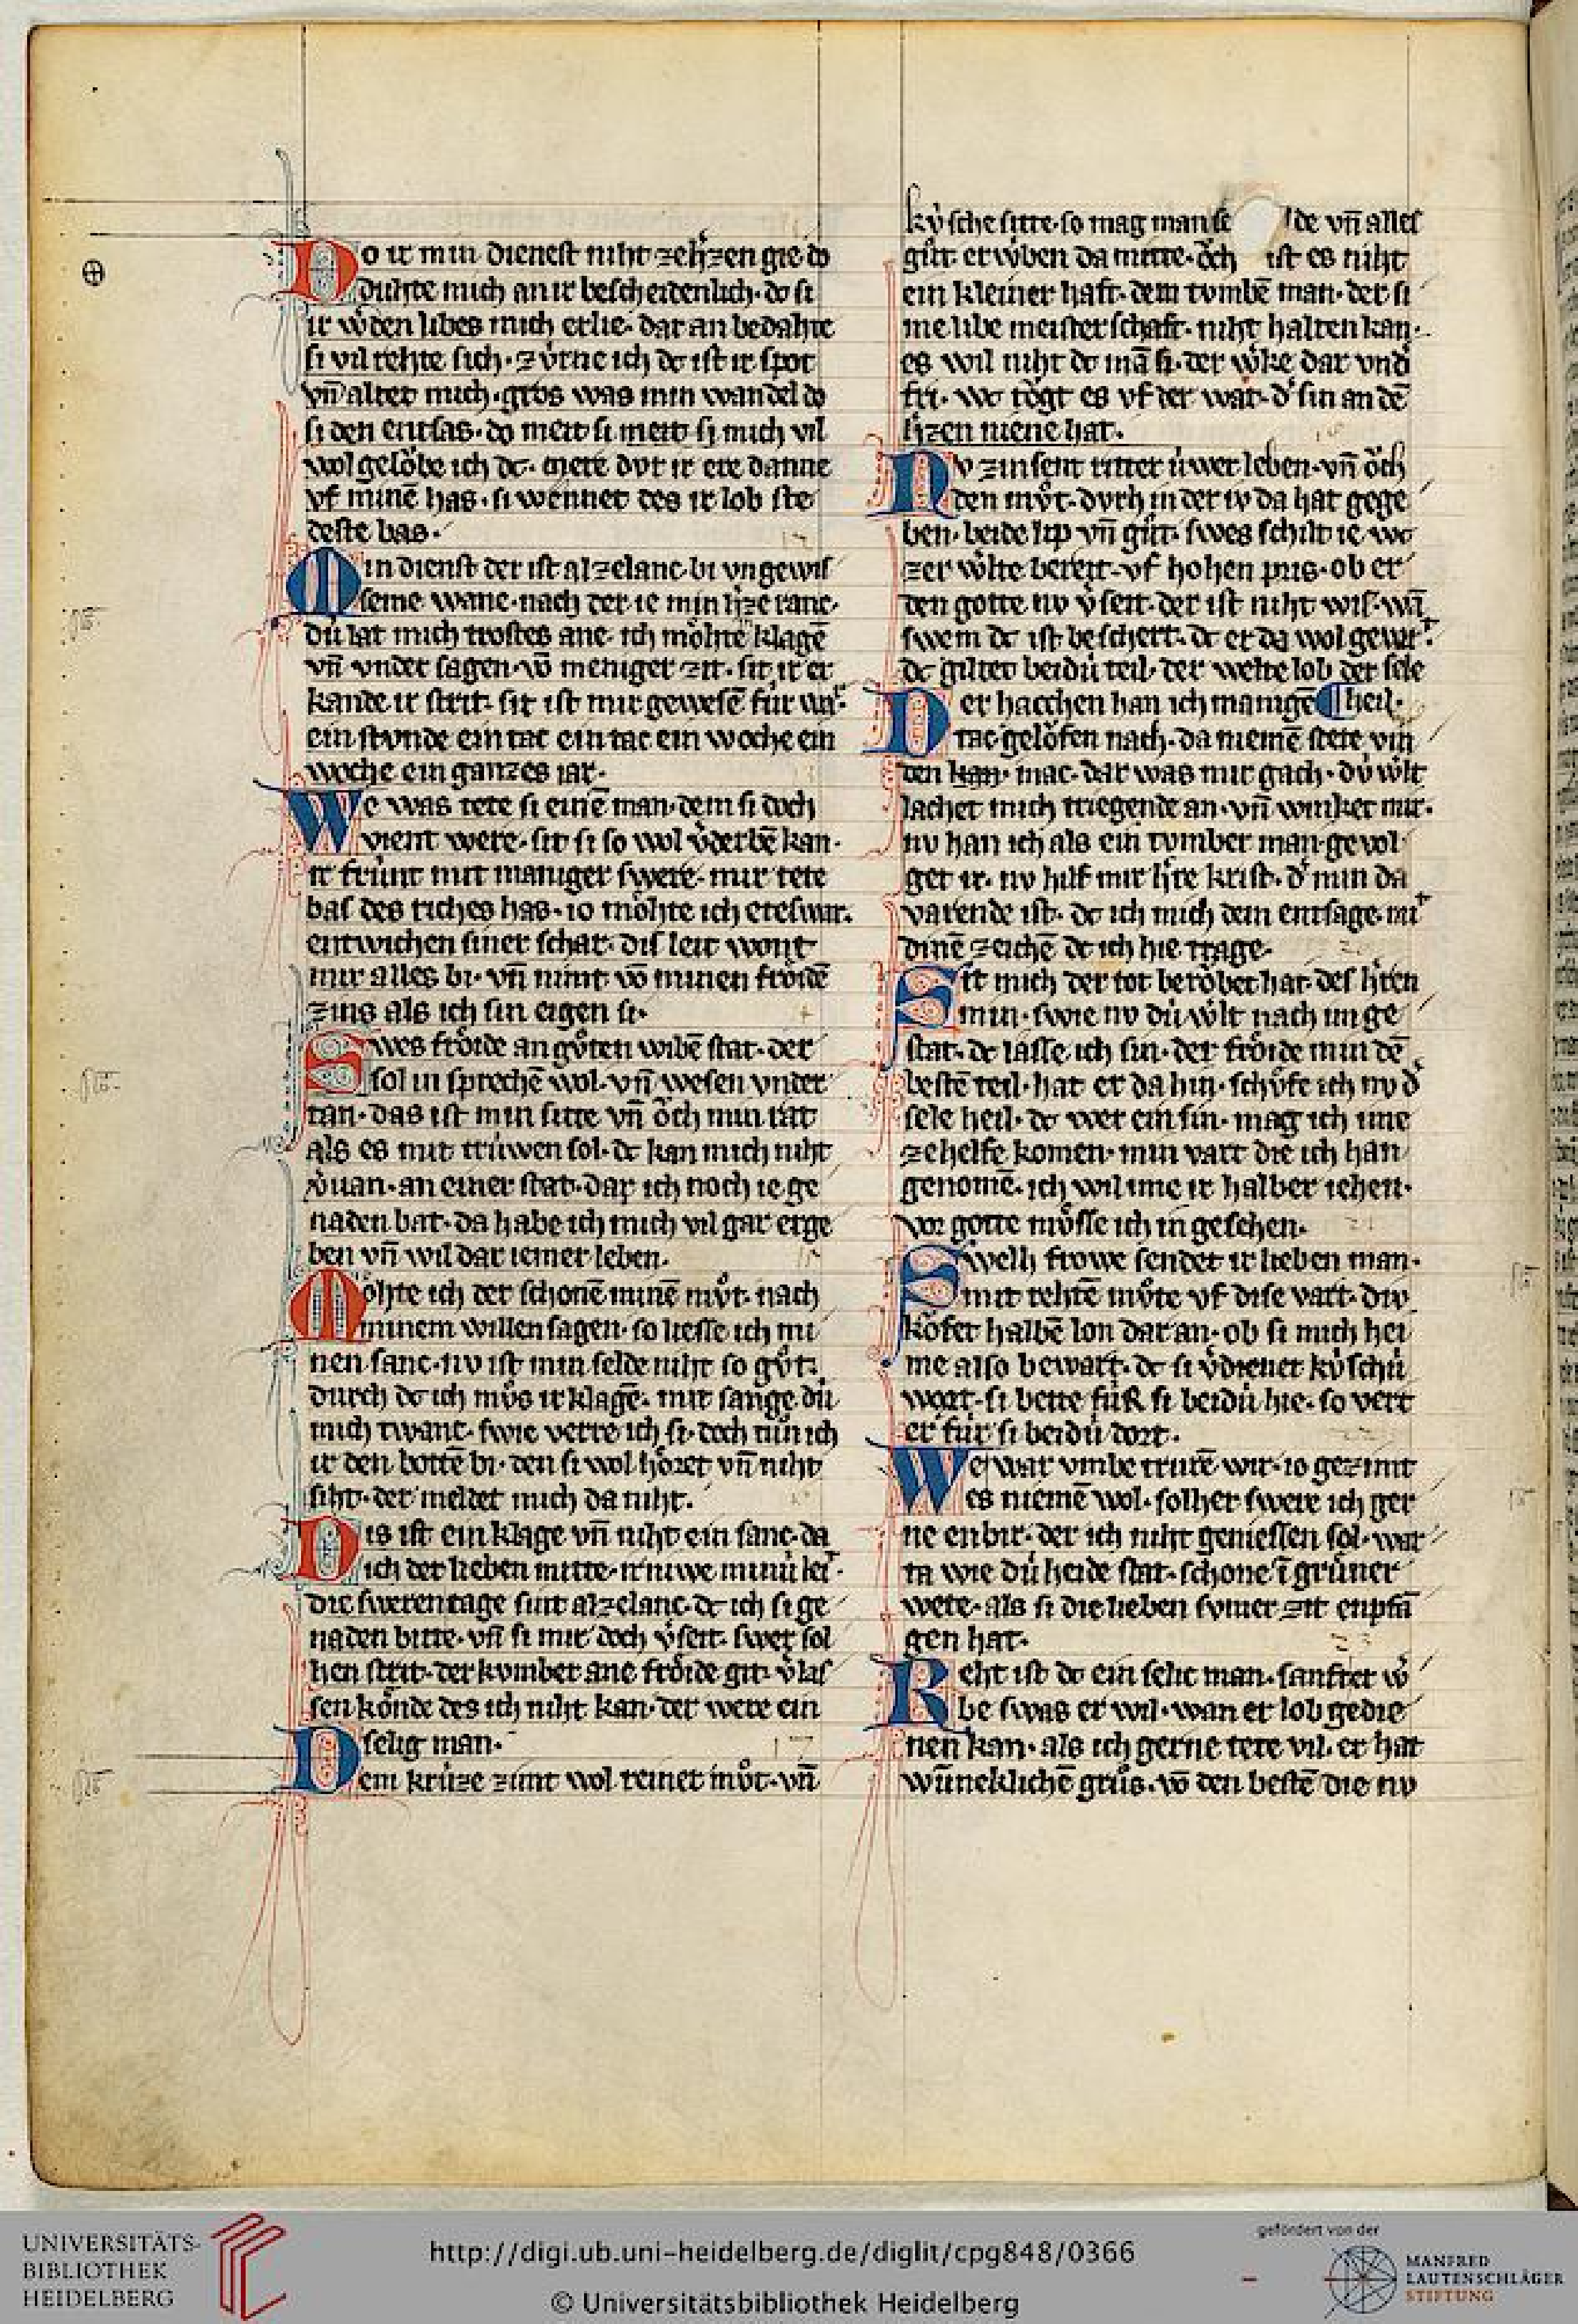 Do ir min dienest niht zeh'zen gie do
duhte mich an ir bescheidenlich· do si
ir w'den libes mich erlie· dar an bedahte
si vil rehte sich· zv́rne ich dc ist ir spot
vn̄ altet mich· gros was min wandel do
si den entsas· do meit si mich vil
wol gelŏbe ich dc· mere dvr ir ere danne
vf minē has· si wennet des ir lob ste
deste bas·
Min dienst der ist alzelanc· bi vngewis
seme wane· nach der ie min h'ze ranc·
dú lat mich trostes ane· ich mohte ir klagē
vn̄ vnder sagen· vō meniger zit· sit ir er
kande ir strit· sit ist mir gewesē fúr war·
ein stvnde ein tac ein tac ein woche ein
woche ein ganzes iar·
We was tete si einē man· dem si doch
vient were· sit si so wol v'derbē kan·
ir frúnt mit maniger swere· mir tete
bas des riches has· io mohte ich eteswar·
entwichen siner schar· dis leit wont
mir alles bi· vn̄ nimt vō minen frŏidē
zins als ich sin eigen si·
Swes frŏide an gůten wibē stat· der
sol in sprechē wol· vn̄ wesen vnder
tan· das ist min sitte vn̄ ŏch min rat
als es mit trúwen sol· dc kan mich niht
v'uan· an einer stat· dar ich noch ie ge
naden bat· da habe ich mich vil gar erge
ben vn̄ wil dar iemer leben·
Mohte ich der schonē minē mvͦt· nach
minem willen sagen· so liesse ich mi
nen sanc· nv ist min selde niht so gvͦt·
durch dc ich mvͦs ir klagē· mit sange dú
mich twanc· swie verre ich si· doch tůn ich
ir den bottē bi· den si wol hŏret vn̄ niht
siht· der meldet mich da niht·
Dis ist ein klage vn̄ niht ein sanc· da
ich der lieben mitte· ir'niwe minú leit·
die sweren tage sint alzelanc· dc ich si ge
naden bitte· vn̄ si mir doch v'seit· swer sol
hen strit· der kvmber ane frŏide git· v'las
sen kŏnde des ich niht kan· der were ein
selig man·
Dem krúze zimt wol reiner mvͦt· vn̄
kv́sche sitte· so mag man se lde vn̄ alles
gůt· erw'ben da mitte· ŏch ist es niht
ein kleiner haft· dem tvmbē man· der si
me libe meisterschaft· niht halten kan·
es wil niht dc mā si· der w'ke dar vnd'
fri· wc tŏgt es vf der wat· d' sin an dē
h'zen niene hat·
Nv zinsent ritter úwer leben· vn̄ ŏch
den mvͦt· dvrh in der iv da hat gege
ben· beide lip vn̄ gůt· swes schilt ie wc
zer w'lte bereit· vf hohen pris· ob er
den gotte nv v'seit· der ist niht wis· wā
swem dc ist beschert· dc er da wol gevert·
dc giltet beidú teil· der welte lob der sele
¶ heil·
Der hacchen han ich manigē
tac gelŏfen nach· da niemē stete vin
den kan· mac· dar was mir gach· dv́ w'lt
lachet mich triegende an· vn̄ winket mir·
nv han ich als ein tvmber man gevol
get ir· nv hilf mir h're krist· d' min da
varende ist· dc ich mich dem entsage mit
dinē zeichē dc ich hie trage·
Sit mich der tot berŏbet hat· des h'ren
min· swie nv dú w'lt nach im ge
stat· dc lasse ich sin· der frŏide min dē
bestē teil· hat er da hin· schv́fe ich nv d'
sele heil· dc wer ein sin· mag ich ime
zehelfe komen· min vart die ich han
genomē· ich wil ime ir halber iehen·
vor gotte mvͦsse ich in gesehen·
Swelh frowe sendet ir lieben man·
mit rehtē mvͦte vf dise vart· div
kŏfet halbē lon dar an· ob si mich hei
me also bewart· dc si v'dienet kv́schú
wort· si bette fúR si beidú hie· so vert
er fúr si beidú dort·
We war vmbe trurē wir· io gezimt
es niemē wol· solher swere ich ger
ne enbir· der ich niht geniessen sol· war
ta wie dú heide stat· schone ī grúner
wete· als si die lieben svmer zit enpfā
gen hat·
Reht ist dc ein selic man· sanfter w'
be swas er wil· wan er lob gedie
nen kan· als ich gerne tete vil· er hat
wūneklichē grůs· vō den bestē die nv
UNIVERSITÄTS-
BIBLIOTHEK
HEIDELBERG
http://digi.ub.uni-heidelberg.de/diglit/cpg848/0366
© Universitätsbibliothek Heidelberg
gefördert von der
MANFRED
LAUTENSCHLÄGER
STIFTUNG